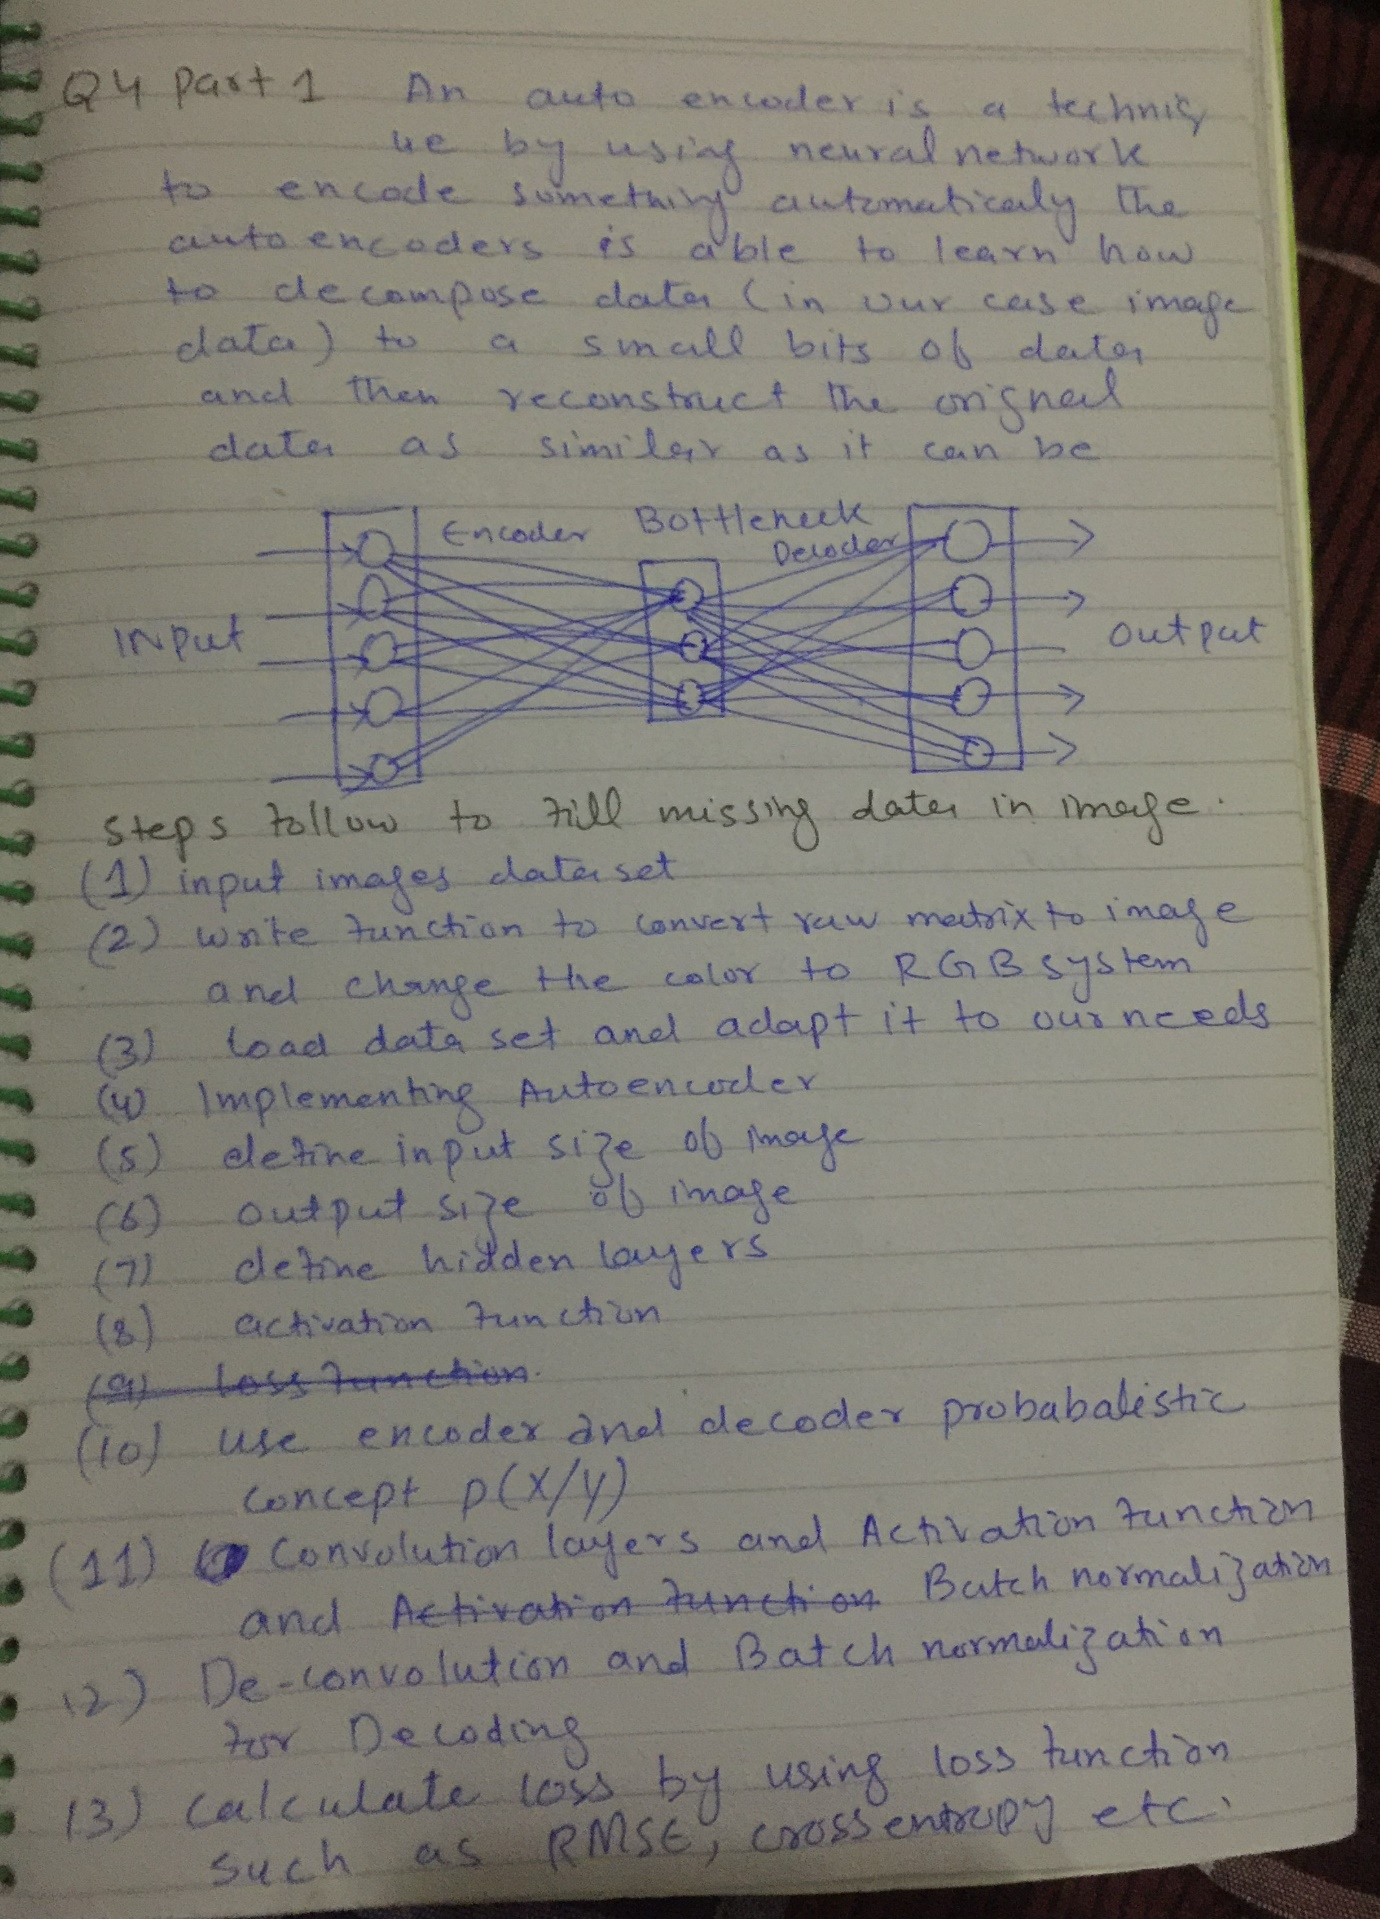 Q4 Part 1 An auto encoder is a techniq
ue by using neural network
to encode something automaticaly the
auto encoders is able to learn how
to decompose data (in our case image
data) to a small bits of data
and then reconstruct the orignal
data as similar as it can be
Encoder Bottleneck
Decoder
INput output
steps follow to fill missing data in image.
(1) input images data set
(2) write function to convert raw matrix to image
and change the color to RGB system
(3) load data set and adapt it to our needs
(4) Implementing Autoencoder
(5) define input size of image
(6) output size of image
(7) define hidden layers
(8) activation function
(9) loss function.
(10) use encoder and decoder probabalistic
concept p(x/y)
(11) Convolution layers and Activation function
and Activation function Batch normalization
12) De-convolution and Batch normalization
for Decoding
13) calculate loss by using loss function
such as RMSE, cross entropy etc.